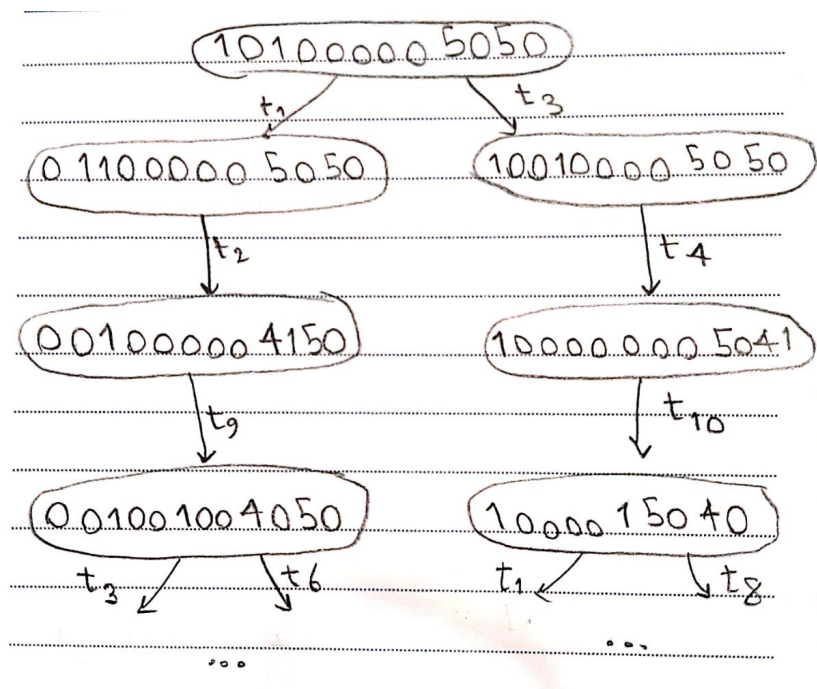 10100000 5050
t1 t3
0 1100000 5050 10010000 5050
t2 t4
00100000 4150 10000000 5041
t9 t10
00100100 4050 10000 15040
t3 t6 t1 t8
... ...